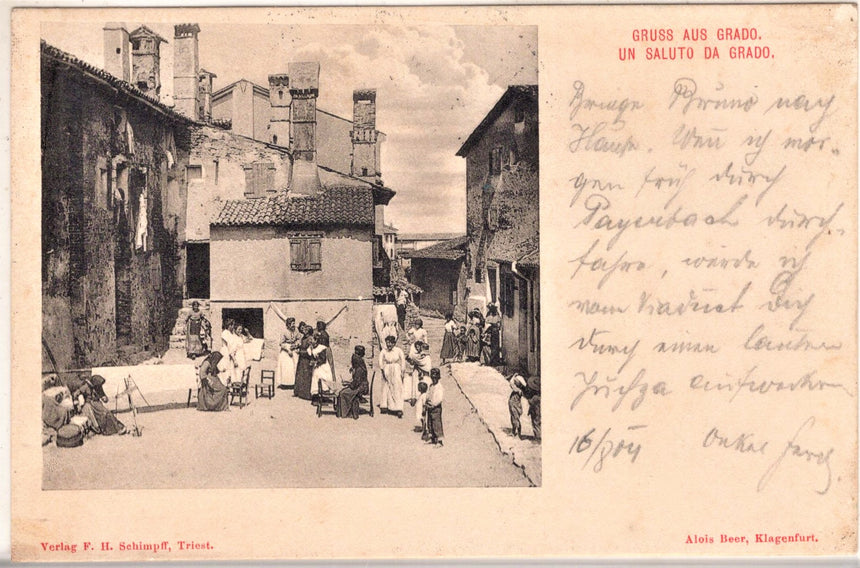 GRUSS AUS GRADO.
UN SALUTO DA GRADO.
Bringe Bruno nach
Hause. Wenn ich mor-
gen früh durch
Payerbach durch-
fahre, werde ich
vom Viaduct Dich
durch einen lauten
Juchza aufwecken
16/ Onkel
Verlag F. H. Schimpff, Triest.
Alois Beer, Klagenfurt.